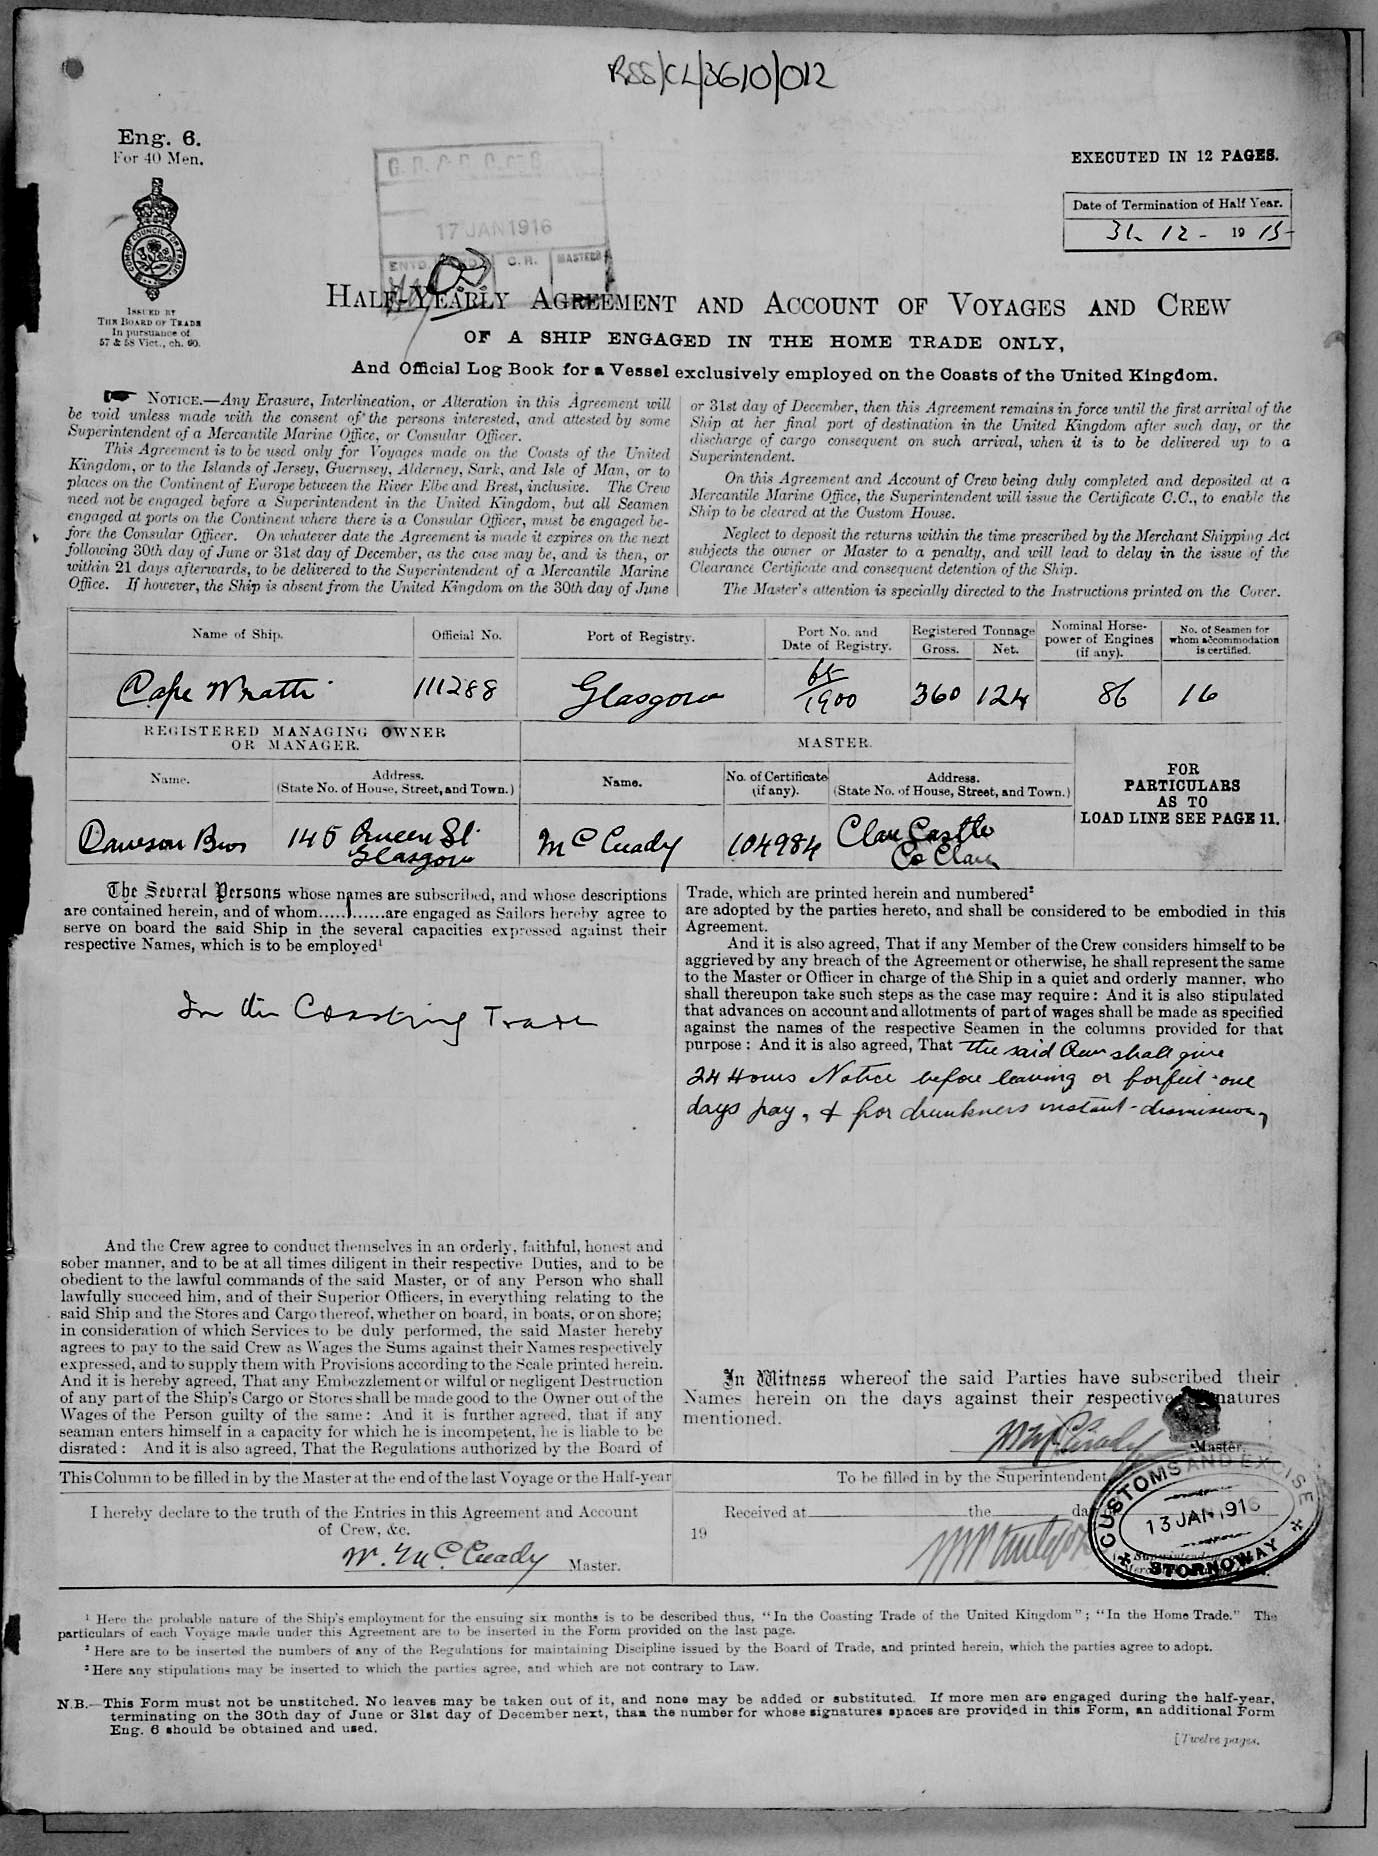 RSS/CL/3610/012
Eng. 6.
For 40 Men.
EXECUTED IN 12 PAGES.
Date of Termination of Half Year.
31. 12 - 1915-
17 JAN 1916
C. R.
MASTERS
ISSUED BY
THE BOARD OF TRADE
In pursuance of
57 & 58 Vict., ch. 60.
HALF-YEARLY AGREEMENT AND ACCOUNT OF VOYAGES AND CREW
OF A SHIP ENGAGED IN THE HOME TRADE ONLY,
And Official Log Book for a Vessel exclusively employed on the Coasts of the United Kingdom.
NOTICE.—Any Erasure, Interlineation, or Alteration in this Agreement will
be void unless made with the consent of the persons interested, and attested by some
Superintendent of a Mercantile Marine Office, or Consular Officer.
This Agreement is to be used only for Voyages made on the Coasts of the United
Kingdom, or to the Islands of Jersey, Guernsey, Alderney, Sark, and Isle of Man, or to
places on the Continent of Europe between the River Elbe and Brest, inclusive. The Crew
need not be engaged before a Superintendent in the United Kingdom, but all Seamen
engaged at ports on the Continent where there is a Consular Officer, must be engaged be-
fore the Consular Officer. On whatever date the Agreement is made it expires on the next
following 30th day of June or 31st day of December, as the case may be, and is then, or
within 21 days afterwards, to be delivered to the Superintendent of a Mercantile Marine
Office. If however, the Ship is absent from the United Kingdom on the 30th day of June
or 31st day of December, then this Agreement remains in force until the first arrival of the
Ship at her final port of destination in the United Kingdom after such day, or the
discharge of cargo consequent on such arrival, when it is to be delivered up to a
Superintendent.
On this Agreement and Account of Crew being duly completed and deposited at a
Mercantile Marine Office, the Superintendent will issue the Certificate C.C., to enable the
Ship to be cleared at the Custom House.
Neglect to deposit the returns within the time prescribed by the Merchant Shipping Act
subjects the owner or Master to a penalty, and will lead to delay in the issue of the
Clearance Certificate and consequent detention of the Ship.
The Master's attention is specially directed to the Instructions printed on the Cover.
Name of Ship.
Official No.
Port of Registry.
Port No. and
Date of Registry.
Registered Tonnage
Gross.
Net.
Nominal Horse-
power of Engines
(if any).
No. of Seamen for
whom accommodation
is certified.
Cape Wrath
111288
Glasgow
65/1900
360
124
86
16
REGISTERED MANAGING OWNER
OR MANAGER.
MASTER.
Name.
Address.
(State No. of House, Street, and Town.)
Name.
No. of Certificate
(if any).
Address.
(State No. of House, Street, and Town.)
FOR
PARTICULARS
AS TO
LOAD LINE SEE PAGE 11.
Daveson Bros
145 Queen St.
Glasgow
McCready
104984
Clare Castle
Co Clare
The Several Persons whose names are subscribed, and whose descriptions
are contained herein, and of whom.....1......are engaged as Sailors hereby agree to
serve on board the said Ship in the several capacities expressed against their
respective Names, which is to be employed¹
In the Coasting Trade
And the Crew agree to conduct themselves in an orderly, faithful, honest and
sober manner, and to be at all times diligent in their respective Duties, and to be
obedient to the lawful commands of the said Master, or of any Person who shall
lawfully succeed him, and of their Superior Officers, in everything relating to the
said Ship and the Stores and Cargo thereof, whether on board, in boats, or on shore;
in consideration of which Services to be duly performed, the said Master hereby
agrees to pay to the said Crew as Wages the Sums against their Names respectively
expressed, and to supply them with Provisions according to the Scale printed herein.
And it is hereby agreed, That any Embezzlement or wilful or negligent Destruction
of any part of the Ship's Cargo or Stores shall be made good to the Owner out of the
Wages of the Person guilty of the same: And it is further agreed, that if any
seaman enters himself in a capacity for which he is incompetent, he is liable to be
disrated: And it is also agreed, That the Regulations authorized by the Board of
Trade, which are printed herein and numbered²
are adopted by the parties hereto, and shall be considered to be embodied in this
Agreement.
And it is also agreed, That if any Member of the Crew considers himself to be
aggrieved by any breach of the Agreement or otherwise, he shall represent the same
to the Master or Officer in charge of the Ship in a quiet and orderly manner, who
shall thereupon take such steps as the case may require: And it is also stipulated
that advances on account and allotments of part of wages shall be made as specified
against the names of the respective Seamen in the columns provided for that
purpose: And it is also agreed, That the said Crew shall give
24 Hours Notice before leaving or forfeit one
days pay, & for drunkness instant dismission
In Witness whereof the said Parties have subscribed their
Names herein on the days against their respective Signatures
mentioned.
Wm McCready
Master.
This Column to be filled in by the Master at the end of the last Voyage or the Half-year
I hereby declare to the truth of the Entries in this Agreement and Account
of Crew, &c.
W. McCready Master.
To be filled in by the Superintendent
Received at the da
19
CUSTOMS AND EXCISE
13 JAN 1916
STORNOWAY
¹ Here the probable nature of the Ship's employment for the ensuing six months is to be described thus, "In the Coasting Trade of the United Kingdom"; "In the Home Trade." The
particulars of each Voyage made under this Agreement are to be inserted in the Form provided on the last page.
² Here are to be inserted the numbers of any of the Regulations for maintaining Discipline issued by the Board of Trade, and printed herein, which the parties agree to adopt.
³ Here any stipulations may be inserted to which the parties agree, and which are not contrary to Law.
N.B.—This Form must not be unstitched. No leaves may be taken out of it, and none may be added or substituted. If more men are engaged during the half-year,
terminating on the 30th day of June or 31st day of December next, than the number for whose signatures spaces are provided in this Form, an additional Form
Eng. 6 should be obtained and used.
[Twelve pages.